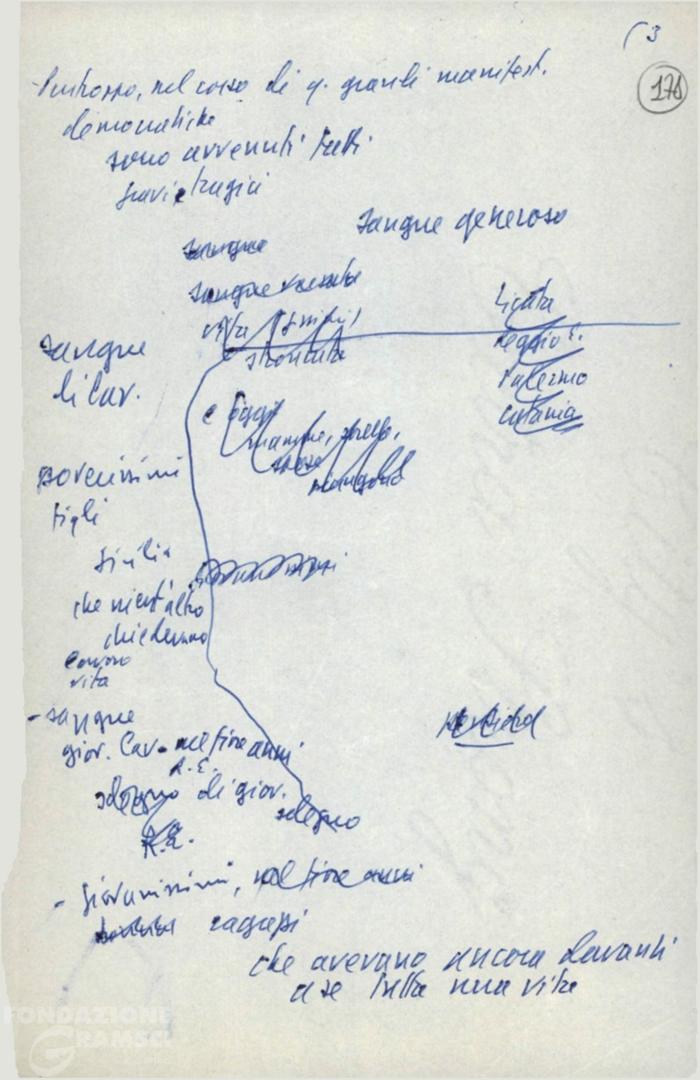 ( 3
178
- Purtroppo, nel corso di q. grandi manifest.
democratiche
sono avvenuti fatti
gravi e tragici
sangue generoso
sangue
sangue versato
vite
stroncate
Licata
Reggio E.
Palermo
Catania
sangue
di lav.
e oggi
mamme, sorelle,
spose
piangono
poverissimi
figli
Sicilia
che nient'altro
chiedevano
lavoro
vita
- sangue
giov. lav. nel fiore anni
R.E.
sdegno di giov.
sdegno
R.E.
- giovanissimi, nel fiore anni
ragazzi
che avevano ancora davanti
a se tutta una vita
FONDAZIONE
GRAMSCI